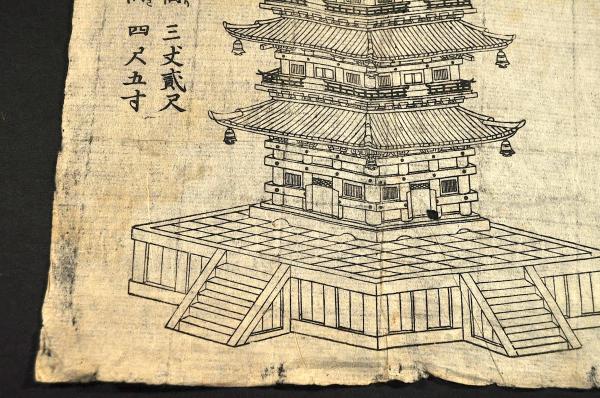 三丈貳尺
四尺五寸